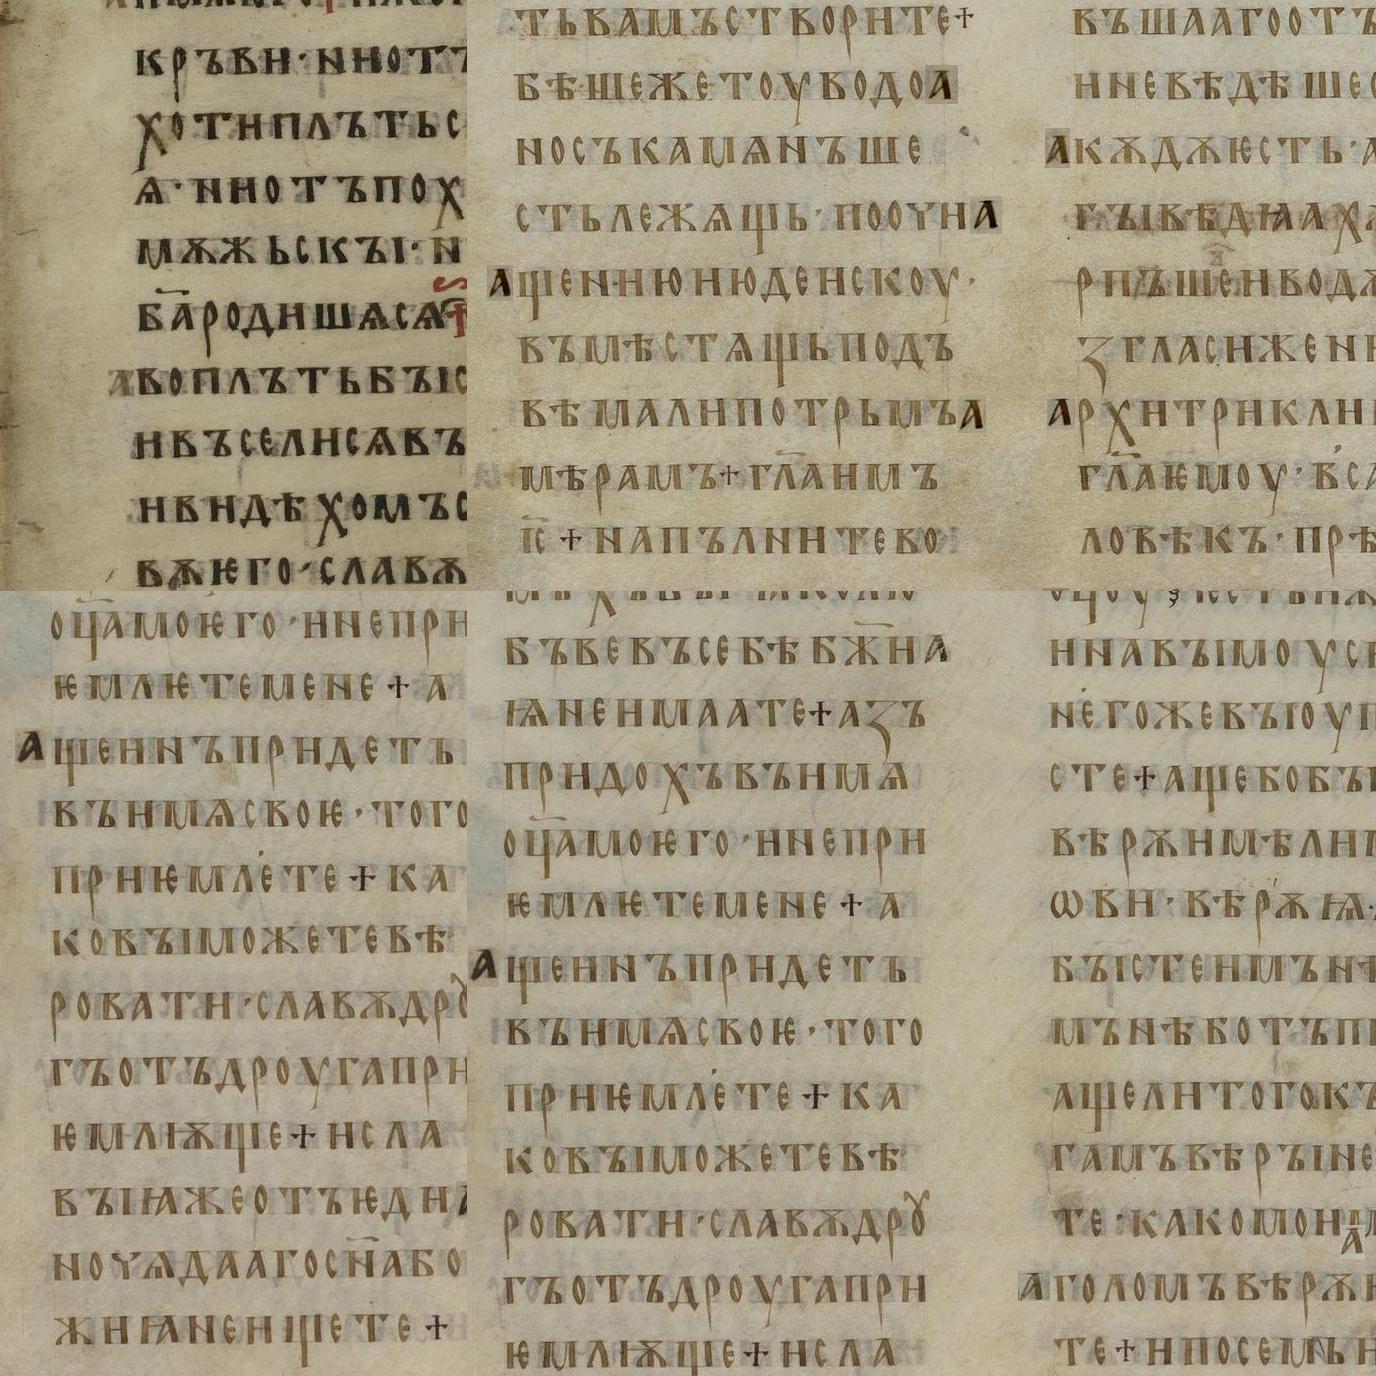 кръви·ннотъ
хотипльтьс
ѧ·ннотъпох
мѫжьскꙑ·н
б҃ародишѧсѧ
авоплътьбꙑс
ивъселисѧвъ
ивидѣхомъс
вѫѥго·славѫ
тьвамъствористе+
бѣшежетоуводоа
носъкамѧнъше
стьлежѧщь·пооуна
ащениюиюдеискоу·
въмѣстѧщьподъ
вѣмалипотрьмъа
мѣрамъ+гл҃аимъ
іс҃+напълнитево
въшаагоотъ
нневѣдѣшео
акѫдѫѥсть·а
гꙑвѣдѣахѫ
рпъшеиводѫ
згласижени
архитрикли
гл҃аѥмоу·вса
ловѣкъ·прѣ
оц҃амоѥго·инепри
ѥмлѥтемене+а
ащеинъпридеть
въимѧсвоѥ·того
приѥмлете+ка
ковꙑможетевѣ
ровати·славѫдрꙋ
гъотъдроугапри
ѥмлѭще+исла
вꙑꙗжеотъѥдина
ноѵѧдаагосн҃або
жиꙗнеищете+
бъвевъсебѣбж҃иа
ꙗнеимаате+азъ
придохъвъимѧ
оц҃амоѥго·инепри
ѥмлѥтемене+а
ащеинъпридеть
въимѧсвоѥ·того
приѥмлете+ка
ковꙑможетевѣ
ровати·славѫдрꙋ
гъотъдроугапри
ѥмлѭще+исла
инавꙑмоуси
негожевꙑоуп
сте+ащебобꙑ
вѣрѫимѣли
ѡви·вѣрѫꙗ
бꙑстеимънѣ
мънѣботъпи
ащелитогокъ
гамъвѣрꙑне
те·какомоим
аголомъвѣрѫ
те+ипосемьи